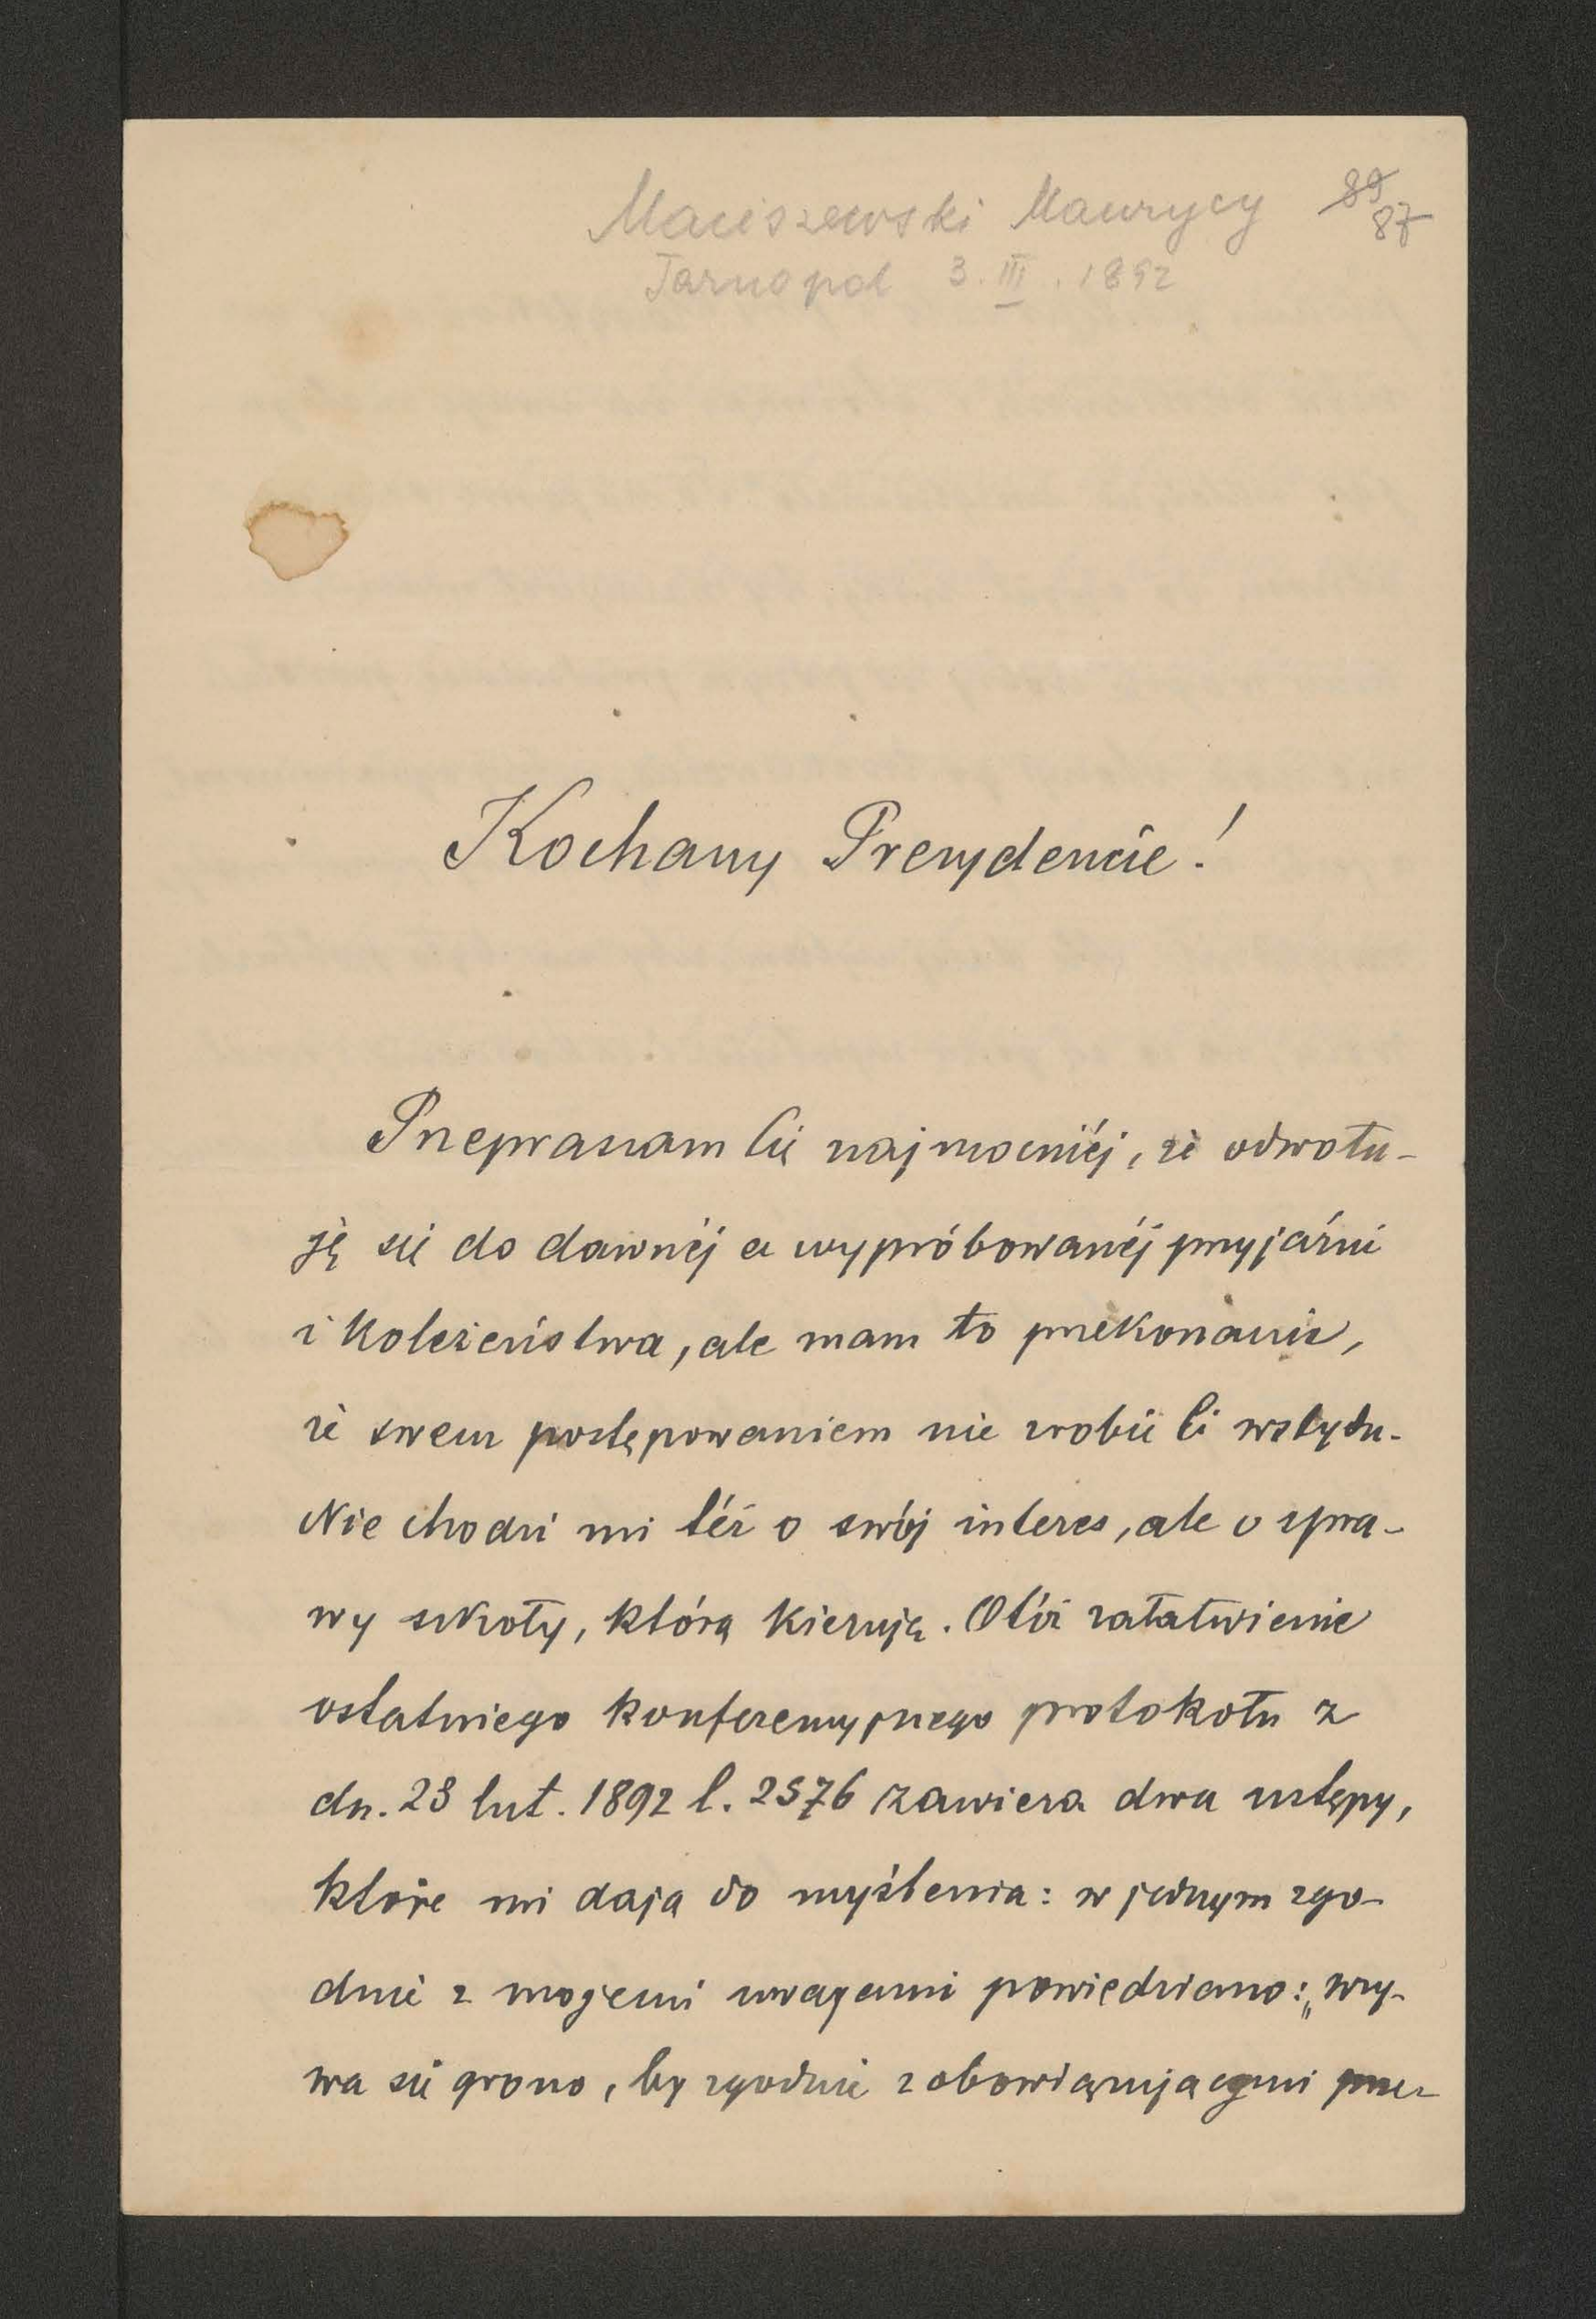 Maciszewski Maurycy 89
87
Tarnopol 3. III. 1892
Kochany Prezydencie!
Przepraszam Cię najmocniéj, że odwołu-
ję się do dawnéj a wypróbowanéj przyjaźni
i koleżeństwa, ale mam to przekonanie,
że swem postępowaniem nie zrobię Ci wstydu.
Nie chodzi mi téż o swój interes, ale o spra-
wy szkoły, którą kieruję. Otóż załatwienie
ostatniego konferencyjnego protokołu z
dn. 23 lut. 1892 l. 2576 zawiera dwa ustępy,
które mi dają do myślenia: w jednym zgo-
dnie z mojemi uwagami powiedziano: „wzy-
wa się grono, by zgodnie z obowiązującymi prze-